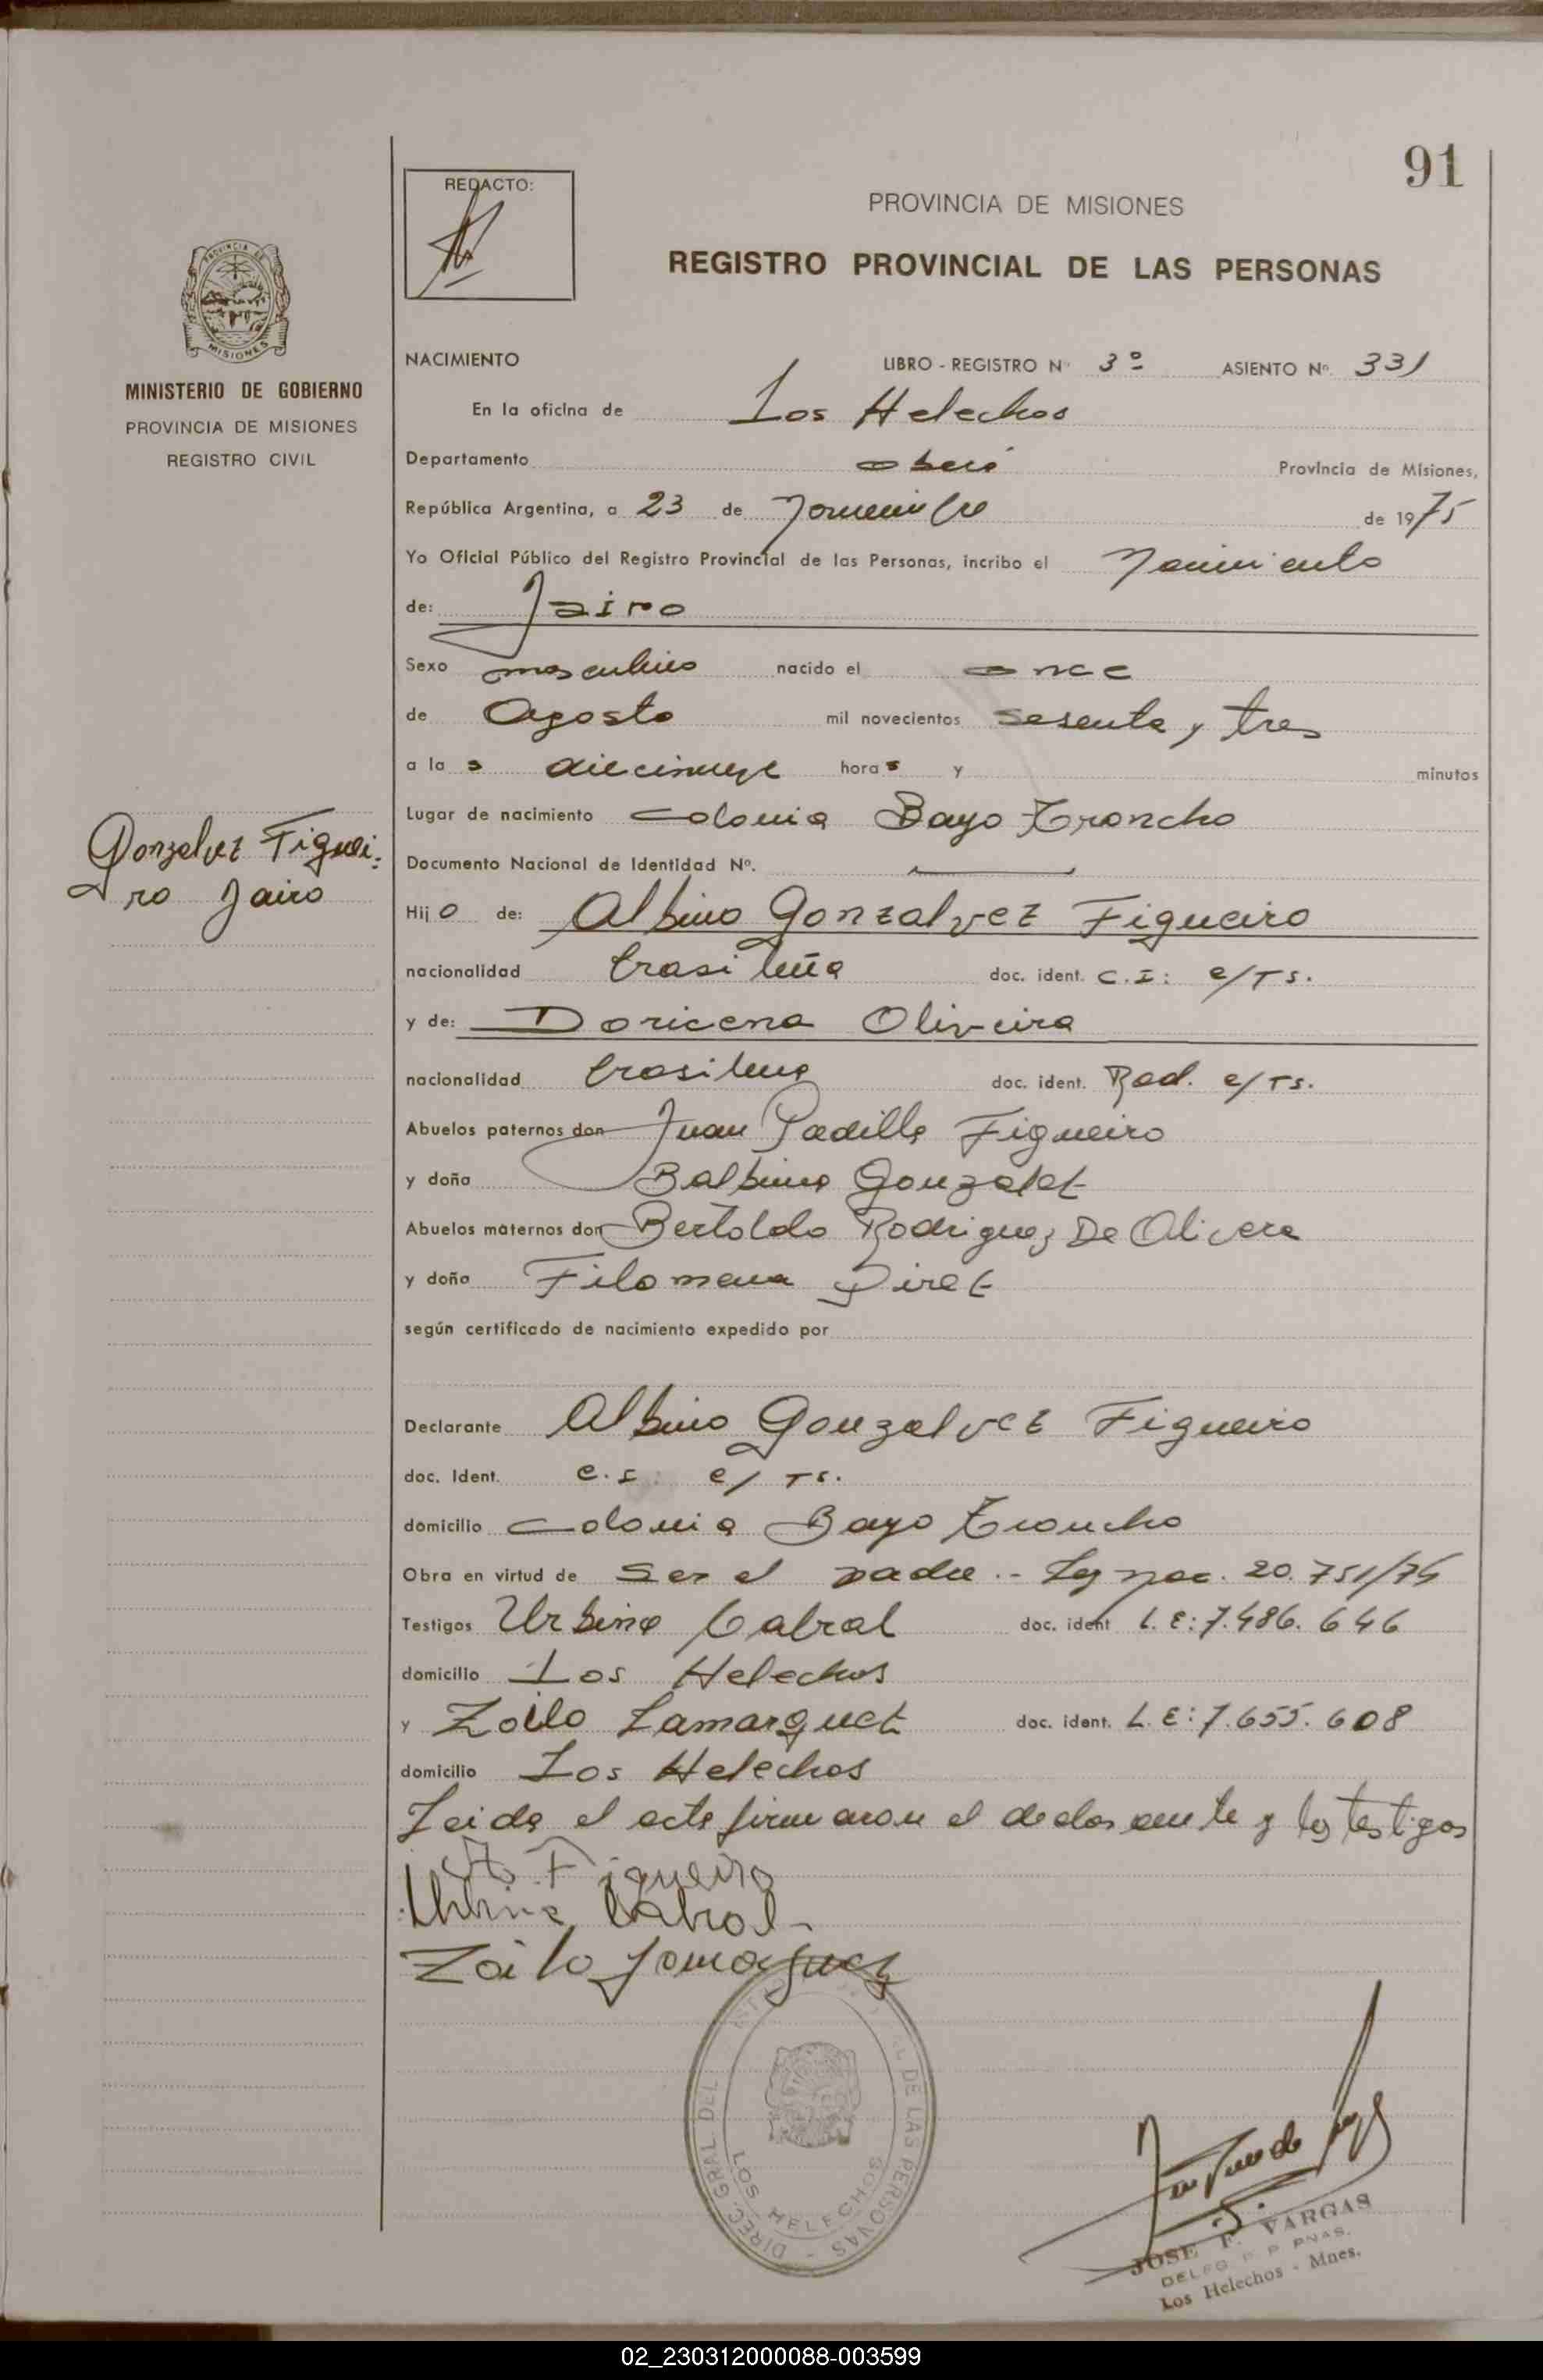 91
REDACTO:
PROVINCIA DE MISIONES
REGISTRO PROVINCIAL DE LAS PERSONAS
PROVINCIA DE
MISIONES
MINISTERIO DE GOBIERNO
PROVINCIA DE MISIONES
REGISTRO CIVIL
NACIMIENTO LIBRO - REGISTRO Nº 3º ASIENTO Nº. 331
En la oficina de Los Helechos
Departamento oberá Provincia de Misiones,
República Argentina, a 23 de Noviembre de 1975
Yo Oficial Público del Registro Provincial de las Personas, incribo el Nacimiento
de: Jairo
Sexo masculino nacido el once
de Agosto mil novecientos sesenta y tres
a la s diecinueve hora s y minutos
Lugar de nacimiento colonia Bayo Troncho
Gonzalvez Figuei-
ro Jairo
Documento Nacional de Identidad Nº.
Hij o de: Albino Gonzalvez Figueiro
nacionalidad brasileña doc. ident. C.I: e/TS.
y de: Doricena Oliveira
nacionalidad brasilena doc. ident. Rad. e/TS.
Abuelos paternos don Juan Padilla Figueiro
y doña Balbina Gonzalez
Abuelos maternos don Bertoldo Rodriguez De Olivera
y doña Filomena
según certificado de nacimiento expedido por
Declarante Albino Gonzalvez Figueiro
doc. Ident. C.I: e/TS.
domicilio colonia Bayo Troncho
Obra en virtud de Ser el padre .- Ley nac. 20.751/74
Testigos Urbino Cabral doc. ident L.E: 7.486.646
domicilio Los Helechos
y Zoilo Lamarquez doc. ident. L.E: 7.655.608
domicilio Los Helechos
Leida el acta firmaron el declarante y los testigos
A. Figueiro
Urbino Cabral
Zoilo Lamarquez
DIREC. GRAL. DEL DE LAS PERSONAS
LOS HELECHOS
JOSE F. VARGAS
DELEG R. P. PNAS.
Los Helechos - Mnes.
02_230312000088-003599